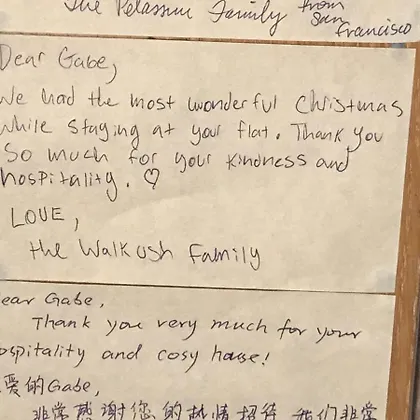 The Pelassum Family from
San
Francisco
Dear Gabe,
We had the most wonderful Christmas
while staying at your flat. Thank you
so much for your kindness and
hospitality. ♡
LOVE,
the Walkush Family
ear Gabe,
Thank you very much for your
ospitality and cosy house!
爱的Gabe,
非常感谢您的热情招待 我们非常